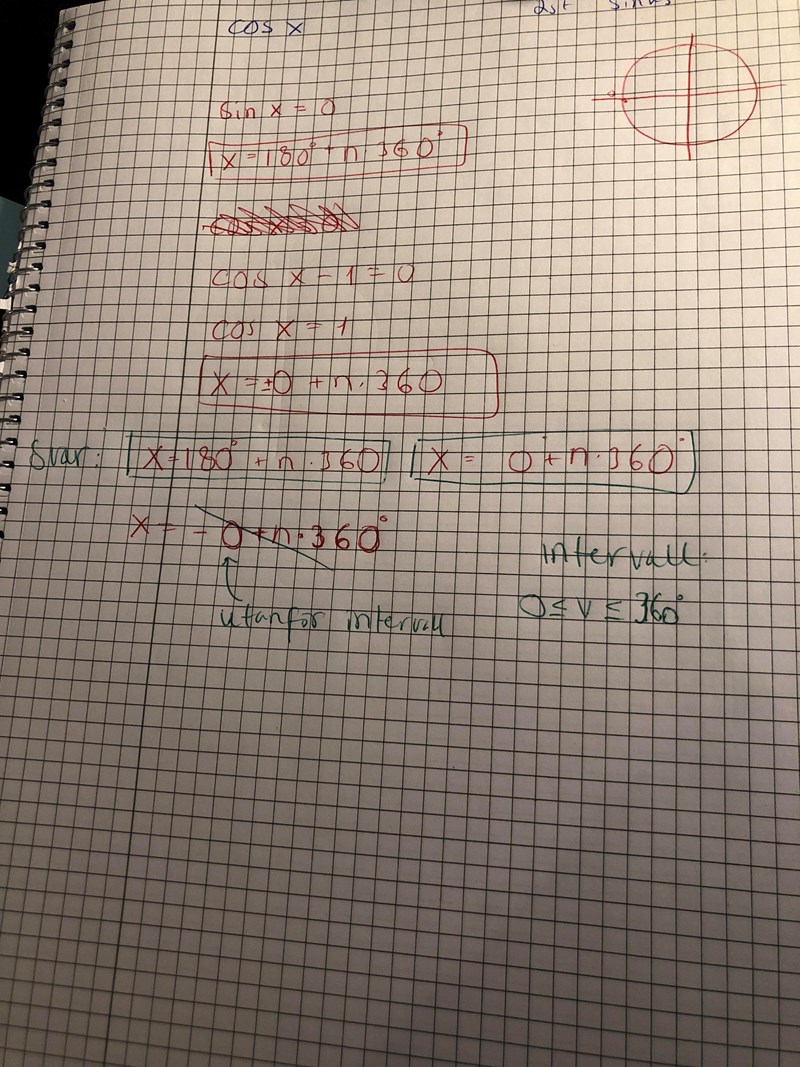 cos x
sin x = 0
x = 180° + n 360°
cos x - 1 = 0
cos x = 1
x = ±0 + n. 360
Svar: x = 180° + n . 360 x = 0 + n. 360°
x = - 0 + n. 360°
intervall:
utanför intervall
0 ≤ v ≤ 360°